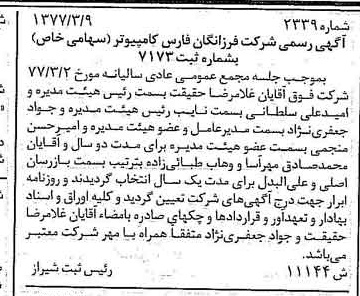 شماره ۲۳۳۹ ۱۳۷۷/۳/۹
آگهی رسمی شرکت فرزانگان فارس کامپیوتر (سهامی خاص)
بشماره ثبت ۷۱۷۳
بموجب جلسه مجمع عمومی عادی سالیانه مورخ ۷۷/۳/۲
شرکت فوق آقایان غلامرضا حقیقت بسمت رئیس هیئت مدیره و
امیدعلی سلطانی بسمت نایب رئیس هیئت مدیره و جواد
جعفری‌نژاد بسمت مدیرعامل و عضو هیئت مدیره و امیرحسن
منجمی بسمت عضو هیئت مدیره برای مدت دو سال و آقایان
محمدصادق مهرآسا و وهاب طبائی‌زاده بترتیب بسمت بازرسان
اصلی و علی‌البدل برای مدت یک سال انتخاب گردیدند و روزنامه
ابرار جهت درج آگهی‌های شرکت تعیین گردید و کلیه اوراق و اسناد
بهادار و تعهدآور و قراردادها و چکهای صادره بامضاء آقایان غلامرضا
حقیقت و جواد جعفری‌نژاد متفقاً همراه با مهر شرکت معتبر
می‌باشد.
ش ۱۱۱۴۴ رئیس ثبت شیراز